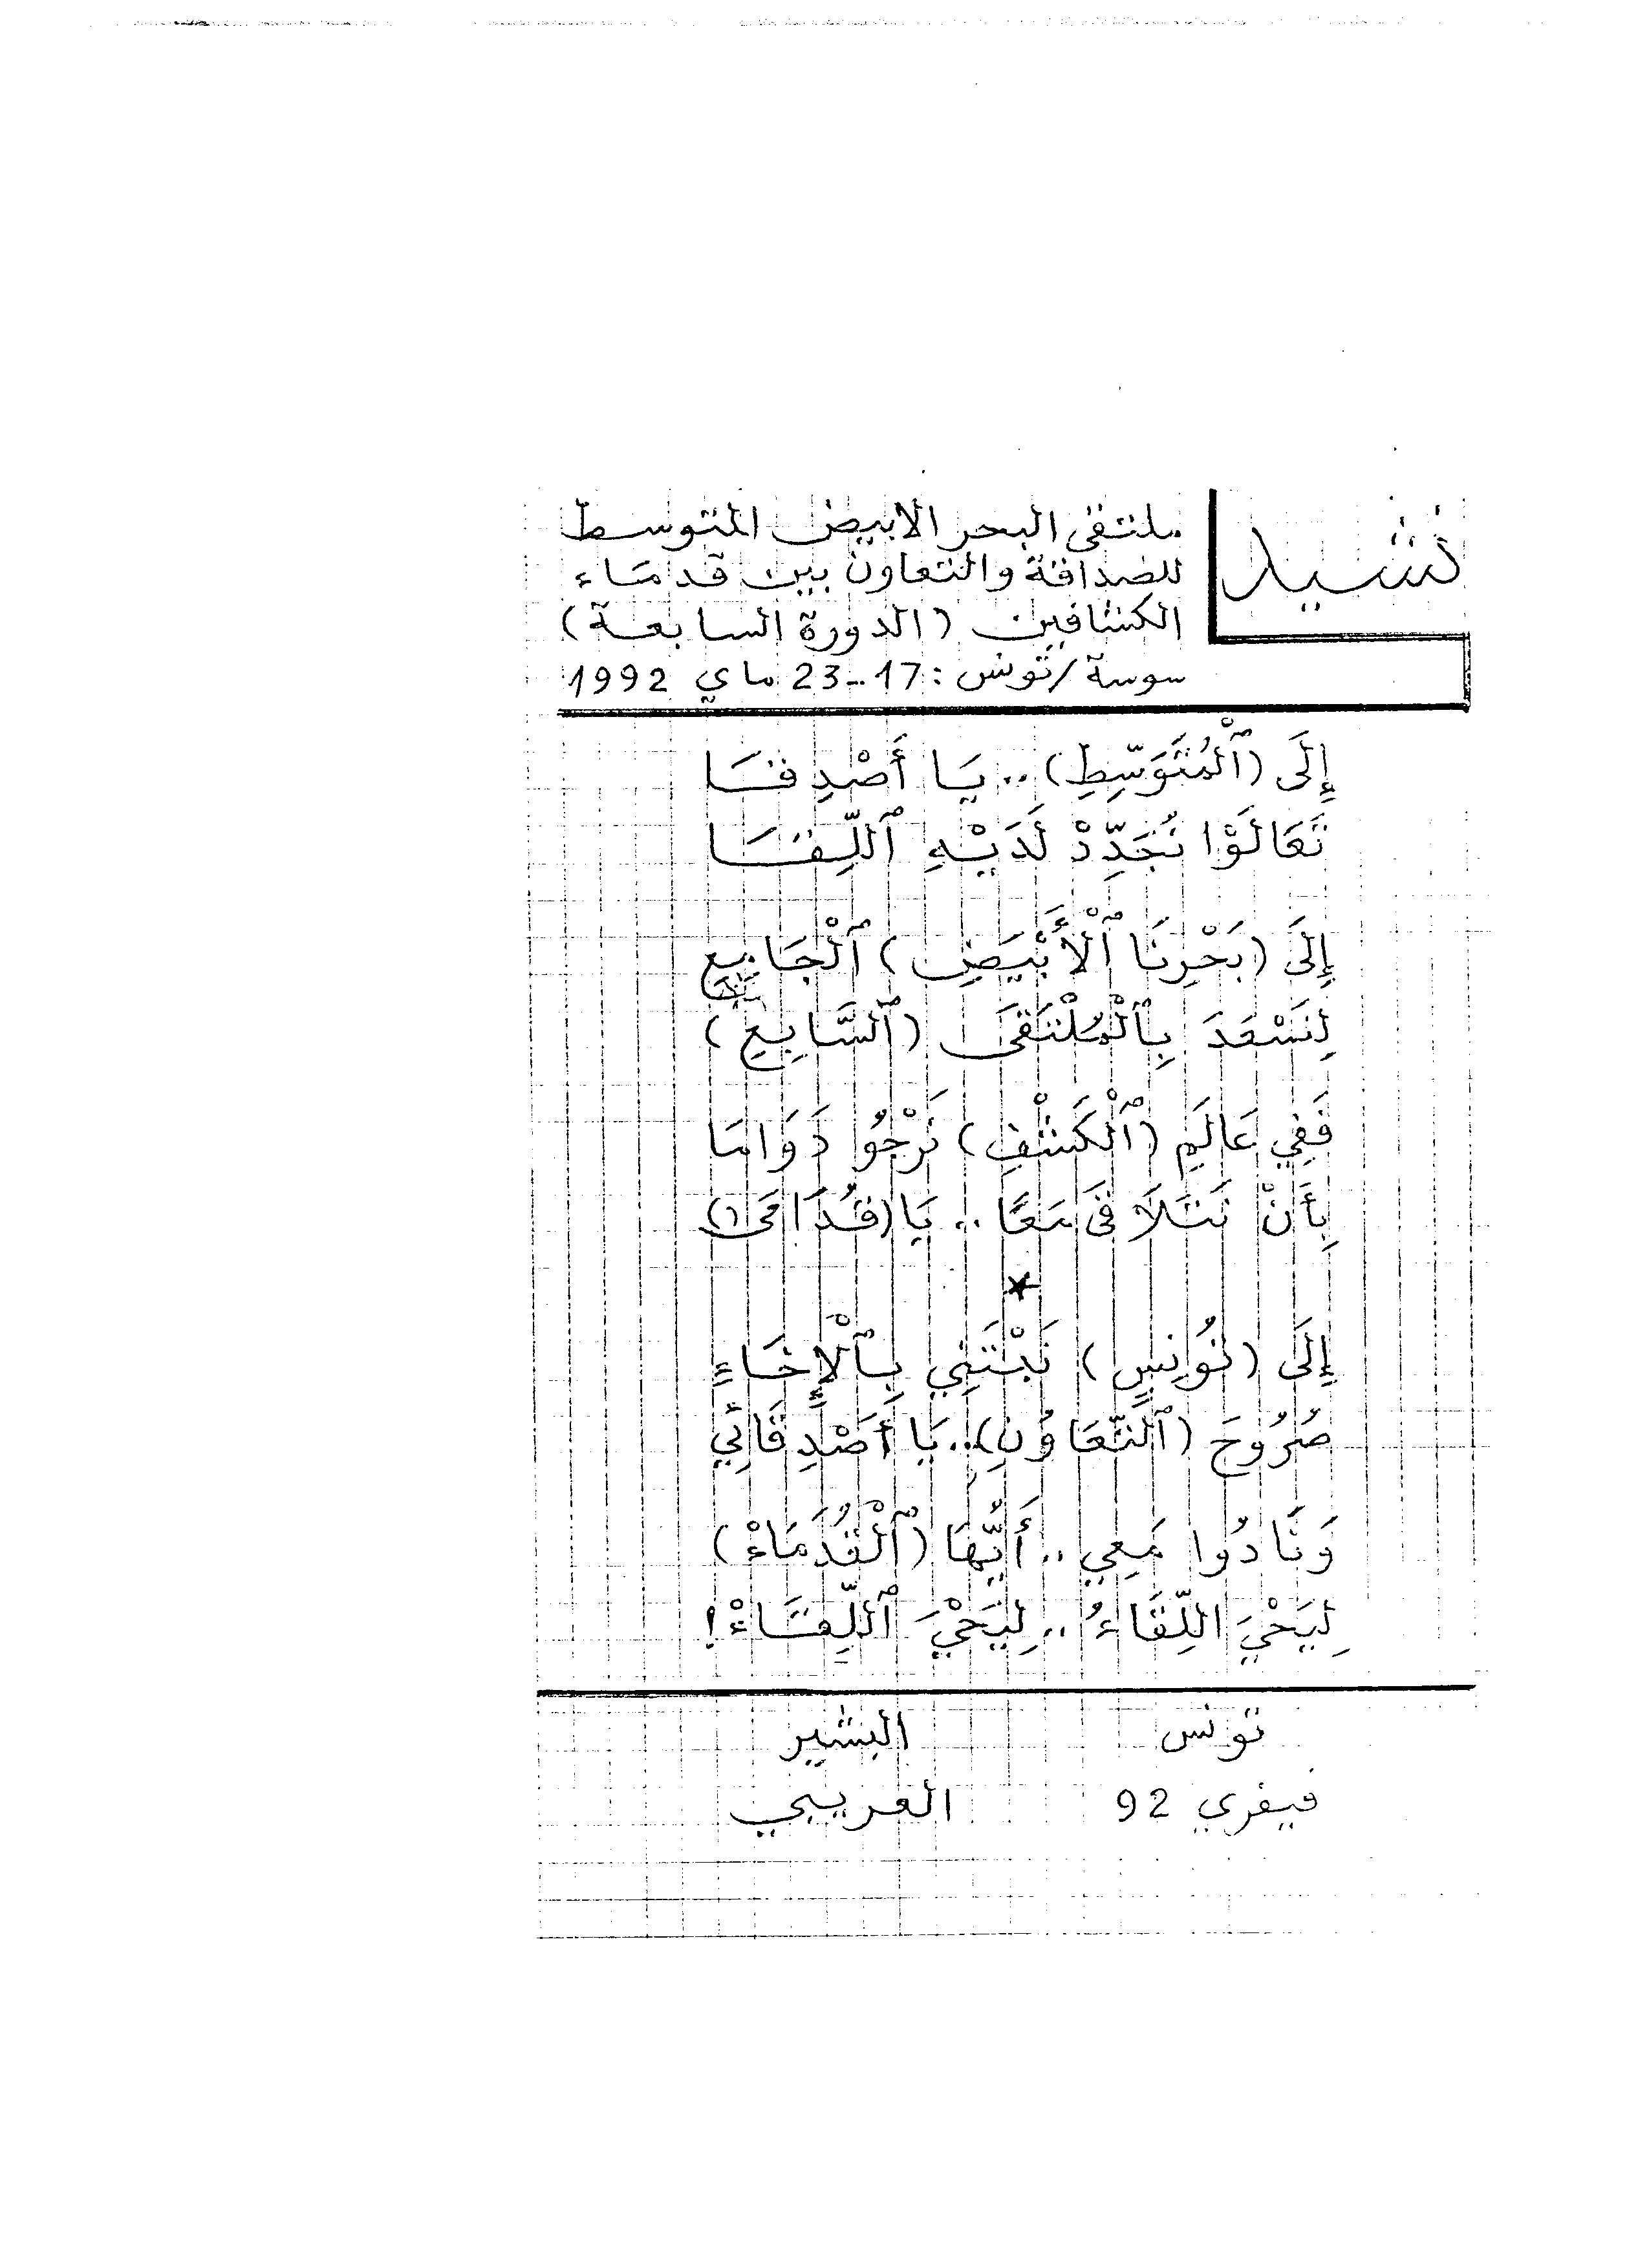 نشيد
ملتقى البحر الابيض المتوسط
للصداقة والتعاون بين قدماء
الكشافين (الدورة السابعة)
سوسة/تونس: 17-23 ماي 1992
إِلَى (ٱلْمُتَوَسِّطِ).. يَا أَصْدِقَا
تَعَالَوْا نُجَدِّدْ لَدَيْهِ ٱللِّقَا
إِلَى (بَحْرِنَا ٱلْأَبْيَضِ) ٱلْجَامِعِ
لِنَسْعَدَ بِٱلْمُلْتَقَى (ٱلسَّابِعِ)
فَفِي عَالَمِ (ٱلْكَشْفِ) نَرْجُو دَوَامَا
بِأَنْ نَتَلَاقَى مَعًا.. يَا (قُدَامَى)
*
إِلَى (تُونِسٍ) نَبْتَنِي بِٱلْإِخَاءِ
صُرُوحَ (ٱلتَّعَاوُنِ).. يَا أَصْدِقَائِي
وَنَادُوا مَعِي.. أَيُّهَا (ٱلْقُدَمَاءْ)
لِيَحْيَ اللِّقَاءُ.. لِيَحْيَ ٱللِّقَاءْ!
تونس
فيفري 92
البشير
العريبي